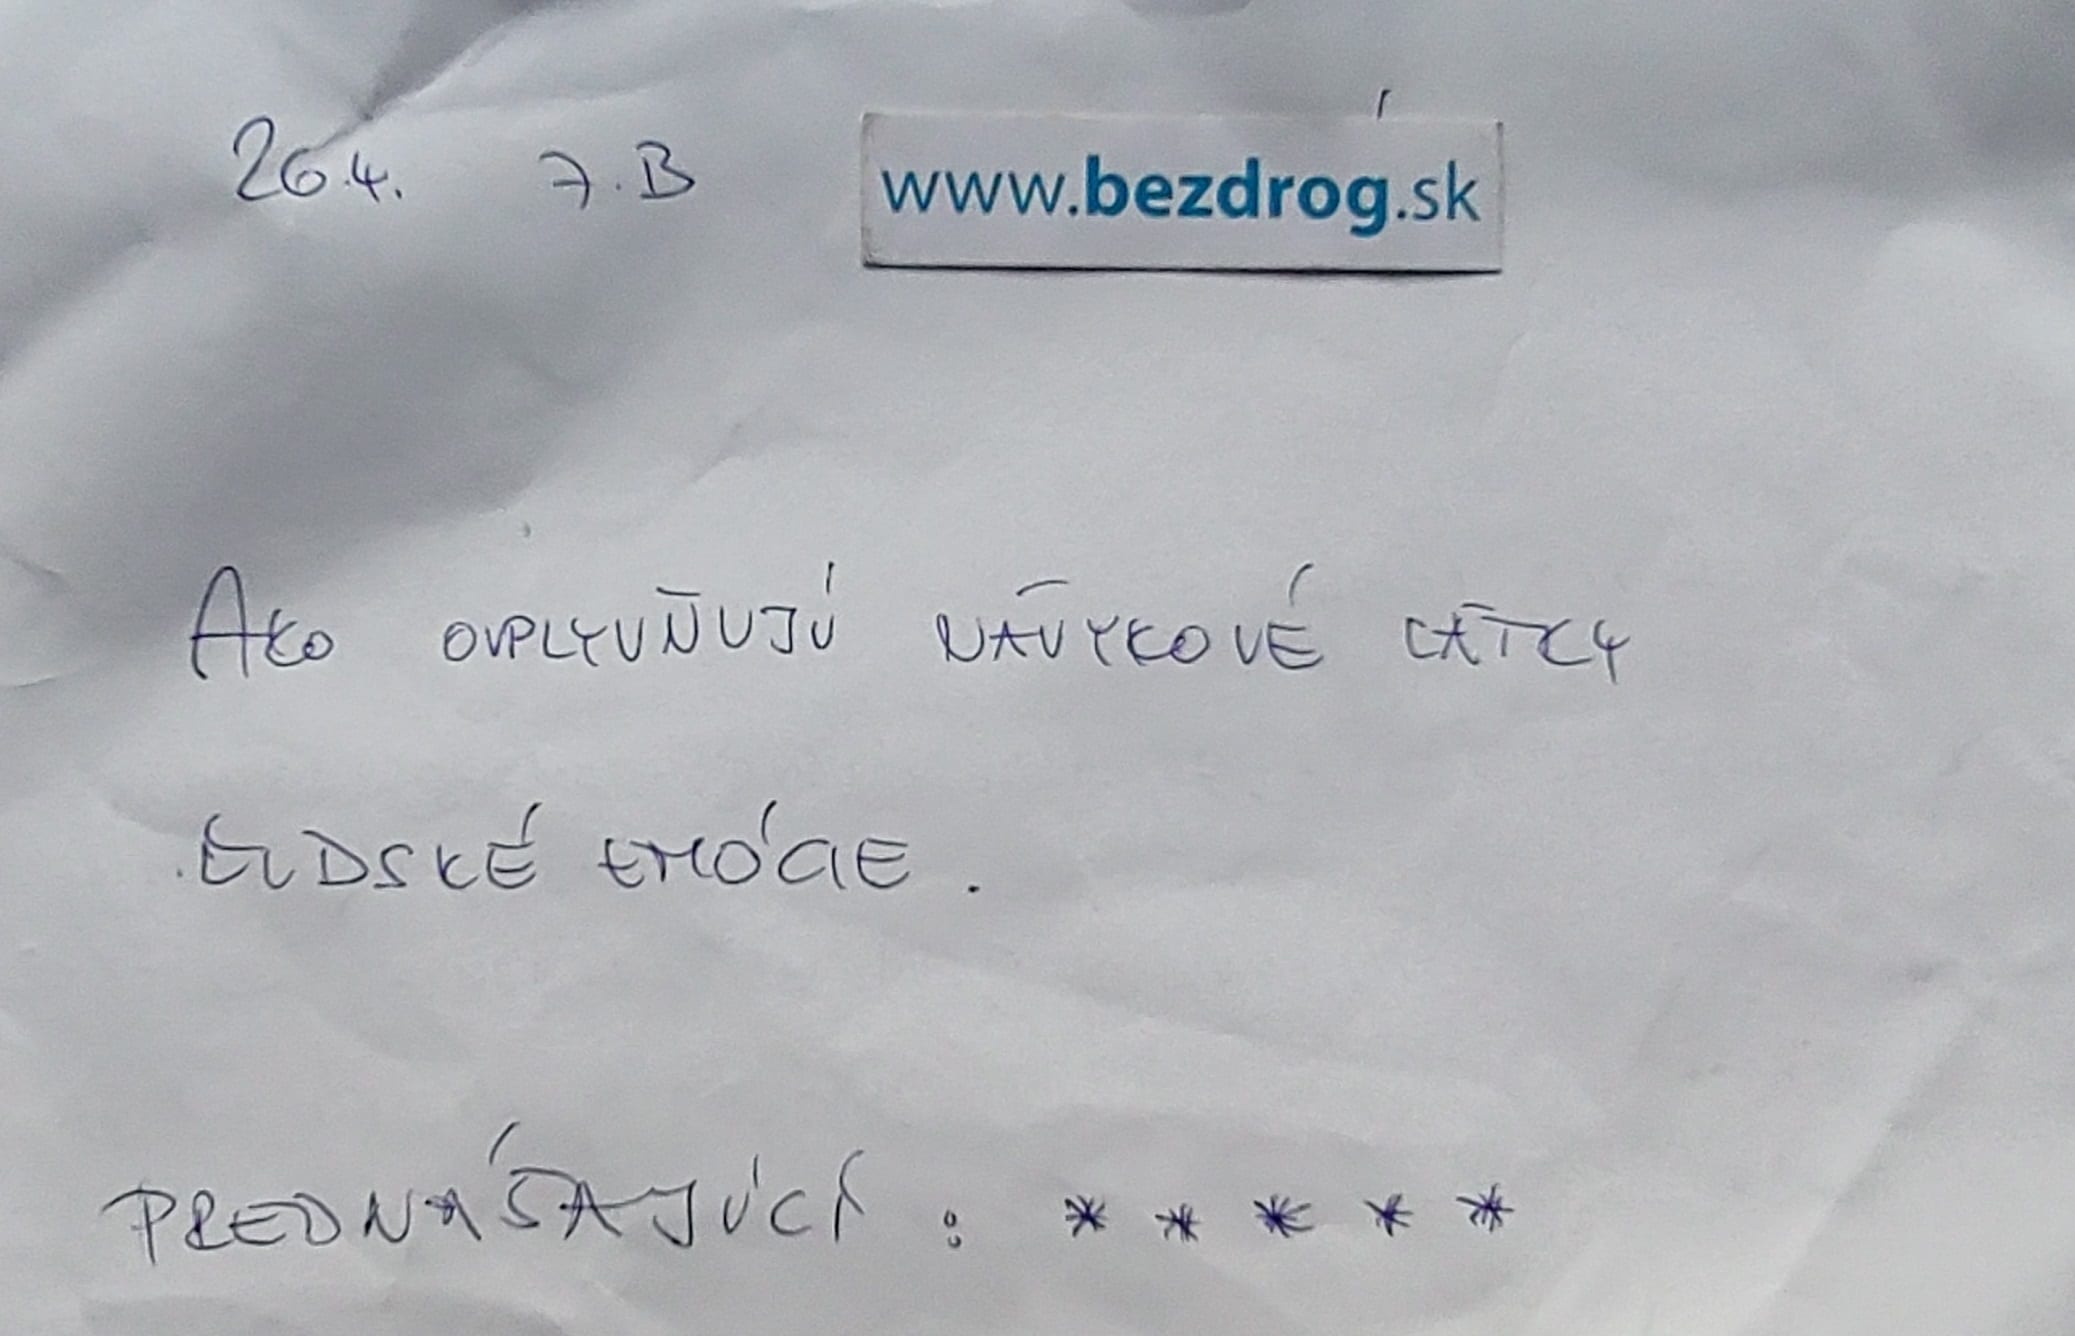 26.4. 7.B www.bezdrog.sk
AKO OVPLYVŇUJÚ NÁVYKOVÉ LÁTKY
ĽUDSKÉ EMÓCIE .
PREDNÁŠAJÚCÍ : * * * * *